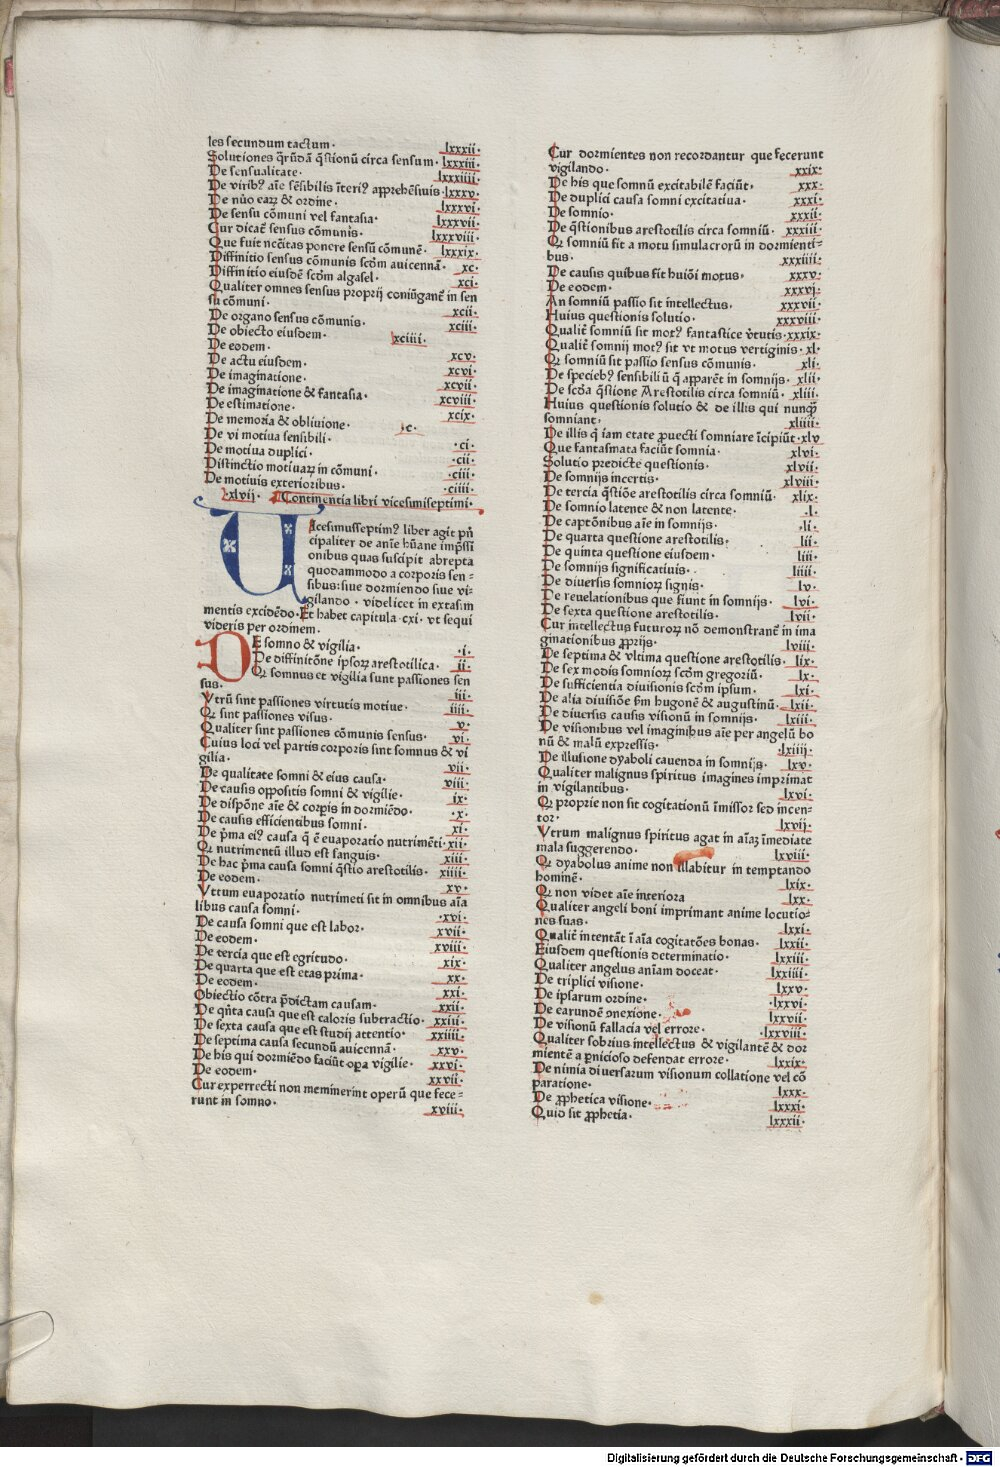 les secundum tactum· lxxxii·
Solutiones q̄rūdā q̄stionū circa sensum· lxxxiii·
De sensualitate· lxxxiiii·
De viribꝰ aīe sēsibilis īteriꝰ apprehēsiuis· lxxxv·
De nūo eaꝝ & ordine· lxxxvi·
De sensu cōmuni vel fantasia· lxxxvii·
Cur dicat̄ sensus cōmunis· lxxxviii·
Que fuit nc̄itas ponere sensū cōmunē· lxxxix·
Diffinitio sensus cōmunis scd̄m auicennā· xc·
Diffinitio eiusdē scd̄m algasel· xci·
Qualiter omnes sensus proprij coniūgant̄ in sen
su cōmuni· xcii·
De organo sensus cōmunis· xciii·
De obiecto eiusdem· xciiii·
De eodem·
De actu eiusdem· xcv·
De imaginatione· xcvi·
De imaginatione & fantasia· xcvii·
De estimatione· xcviii·
De memoria & obliuione· xcix·
De vi motiua sensibili· ·c·
De motiua duplici· ·ci·
Distinctio motiuaꝝ in cōmuni· ·cii·
De motiuis exterioribus· ·ciii·
·ciiii·
·xlvij· Continentia libri vicesimiseptimi·
Vicesimusseptimꝰ liber agit pn̄
cipaliter de anīe hūane imp̄ssi
onibus quas suscipit abrepta
quodammodo a corporis sen=
sibus: siue dormiendo siue vi=
gilando· videlicet in extasim
mentis excidēdo· Et habet capitula·cxi· vt sequi
videris per ordinem·
DE somno & vigilia· ·i·
De diffinitōne ipsoꝝ arestotilica· ii·
Qꝫ somnus et vigilia sunt passiones sen
sus· iii·
Vtrū sint passiones virtutis motiue· iiii·
Qꝫ sint passiones visus· v·
Qualiter sint passiones cōmunis sensus· vi·
Cuius loci vel partis corporis sint somnus & vi
gilia· vii·
De qualitate somni & eius causa· viii·
De causis oppositis somni & vigilie· ix·
De dispōne aīe & corp̄is in dormiēdo· ·x·
De causis efficientibus somni· xi·
De p̄ma eiꝰ causa q̄ ē euaporatio nutrimēti· xii·
Qꝫ nutrimentū illud est sanguis· xiii·
De hac p̄ma causa somni q̄stio arestotilis· xiiii·
De eodem· xv·
Vtrum euaporatio nutrimēti sit in omnibus aīa
libus causa somni· ·xvi·
De causa somni que est labor· xvii·
De eodem· xviii·
De tercia que est egritudo· xix·
De quarta que est etas prima· xx·
De eodem· xxi·
Obiectio cōtra p̄dictam causam· xxii·
De qn̄ta causa que est caloris subtractio· xxiii·
De sexta causa que est studij attentio· xxiiii·
De septima causa secundū auicennā· xxv·
De his qui dormiēdo faciūt opa vigilie· xxvi·
De eodem· xxvii·
Cur experrecti non meminerint operū que fece=
runt in somno· xviii·
Cur dormientes non recordantur que fecerunt
vigilando· xxix·
De his que somnū excitabilē faciūt· xxx·
De duplici causa somni excitatiua· xxxi·
De somnio· xxxii·
De q̄stionibus arestotilis circa somniū· xxxiii·
Qꝫ somniū fit a motu simulacrorū in dormienti=
bus· xxxiiii·
De causis quibus fit huiōi motus· xxxv·
De eodem· xxxvj·
An somniū passio sit intellectus· xxxvii·
Huius questionis solutio· xxxviii·
Qualit̄ somniū sit motꝰ fantastice v̄tutis· xxxix·
Qualit̄ somnij motꝰ sit vt motus vertiginis· xl·
Qꝫ somniū sit passio sensus cōmunis· xli·
De speciebꝰ sensibiliū q̄ apparēt in somnijs· xlii·
De scd̄a q̄stione Arestotilis circa somniū· xliii·
Huius questionis solutio & de illis qui nunqꝫ̄
somniant· xliiii·
De illis q̄ iam etate ꝓuecti somniare īcipiūt· xlv
Que fantasmata faciūt somnia· xlvi·
Solutio predicte questionis· xlvii·
De somnijs incertis· xlviii·
De tercia q̄stiōe arestotilis circa somniū· xlix·
De somnio latente & non latente· ·l·
De captōnibus aīe in somnijs· ·li·
De quarta questione arestotilis· lii·
De quinta questione eiusdem· liii·
De somnijs significatiuis· liiii·
De diuersis somnioꝝ signis· lv·
De reuelationibus que fiunt in somnijs· lvi·
De sexta questione arestotilis· lvii·
Cur intellectus futuroꝝ nō demonstrant̄ in ima
ginationibus ꝓprijs· lviii·
De septima & vltima questione arestotilis· lix·
De sex modis somnioꝝ scd̄m gregoriū· lx·
De sufficientia diuisionis scd̄m ipsum· lxi·
De alia diuisiōe sm̄ hugonē & augustinū· lxii·
De diuersis causis visionū in somnijs· lxiii·
De visionibus vel imaginibus aīe per angelū bo
nū & malū expressis· ·lxiiij·
De illusione dyaboli cauenda in somnijs· lxv·
Qualiter malignus spiritus imagines imprimat
in vigilantibus· lxvi·
Qꝫ proprie non sit cogitationū īmissor sed incen=
tor· lxvij·
Vtrum malignus spiritus agat in aīaꝫ īmediate
mala suggerendo· lxviii·
Qꝫ dyabolus anime non illabitur in temptando
hominē· lxix·
Qꝫ non videt aīe interiora lxx·
Qualiter angeli boni imprimant anime locutio=
nes suas· lxxi·
Qualit̄ intentāt ī aīa cogitatōes bonas· lxxii·
Eiusdem questionis determinatio· lxxiii·
Qualiter angelus anīam doceat· lxxiiii·
De triplici visione· lxxv·
De ipsarum ordine· ·lxxvi·
De earundē ꝯnexione· lxxvii·
De visionū fallacia vel errore· ·lxxviii·
Qualiter sobrius intellectus & vigilantē & dor
mientē a ꝑnicioso defendat errore· lxxix·
De nimia diuersarum visionum collatione vel cō
paratione· lxxx·
De ꝓphetica visione· lxxxi·
Quid sit ꝓphetia· lxxxii·
Digitalisierung gefördert durch die Deutsche Forschungsgemeinschaft · DFG